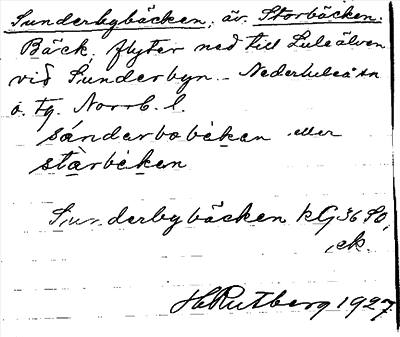 Sunderbybäcken, äv. Storbäcken.
Bäck, flyter ned till Luleälven
vid Sunderbyn. - Nederluleå sn
o. tg. Norrb. l.
sándərbobèkən eller
stàrbèkən
Sunderbybäcken kG 36 SO,
ek.
H Rutberg 1927